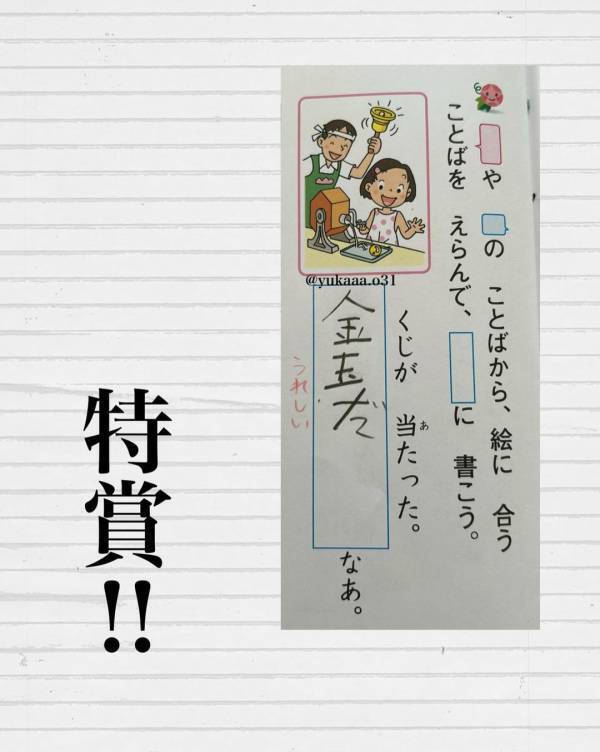 や の ことばから、絵に 合う
ことばを えらんで、 に 書こう。
@yukaaa.o31
くじが 当たった。
あ
金玉だ
なあ。
うれしい
特賞!!